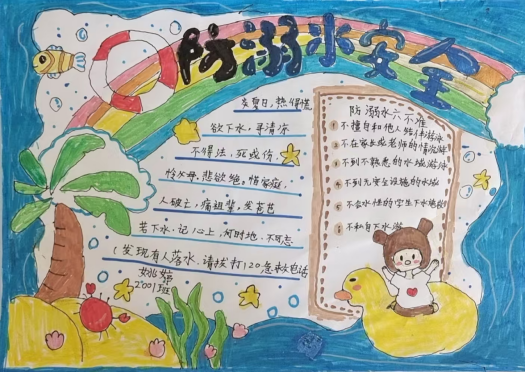 防溺水安全
炎夏日,热慌慌
欲下水,寻清凉
不得法,死或伤
怜父母,悲欲绝,惜家庭,
人破亡,痛祖辈,发苍苍
若下水,记心上,何时地,不可忘
(发现有人落水,请拨打120急救电话
姚婷
2001班
防溺水六不准
1 不擅自和他人结伴游泳
2 不在无家长或老师的情况游泳
3 不到不熟悉的水域游泳
4 不到无安全设施的水域
5 不会水性的学生下水施救
6 不私自下水游